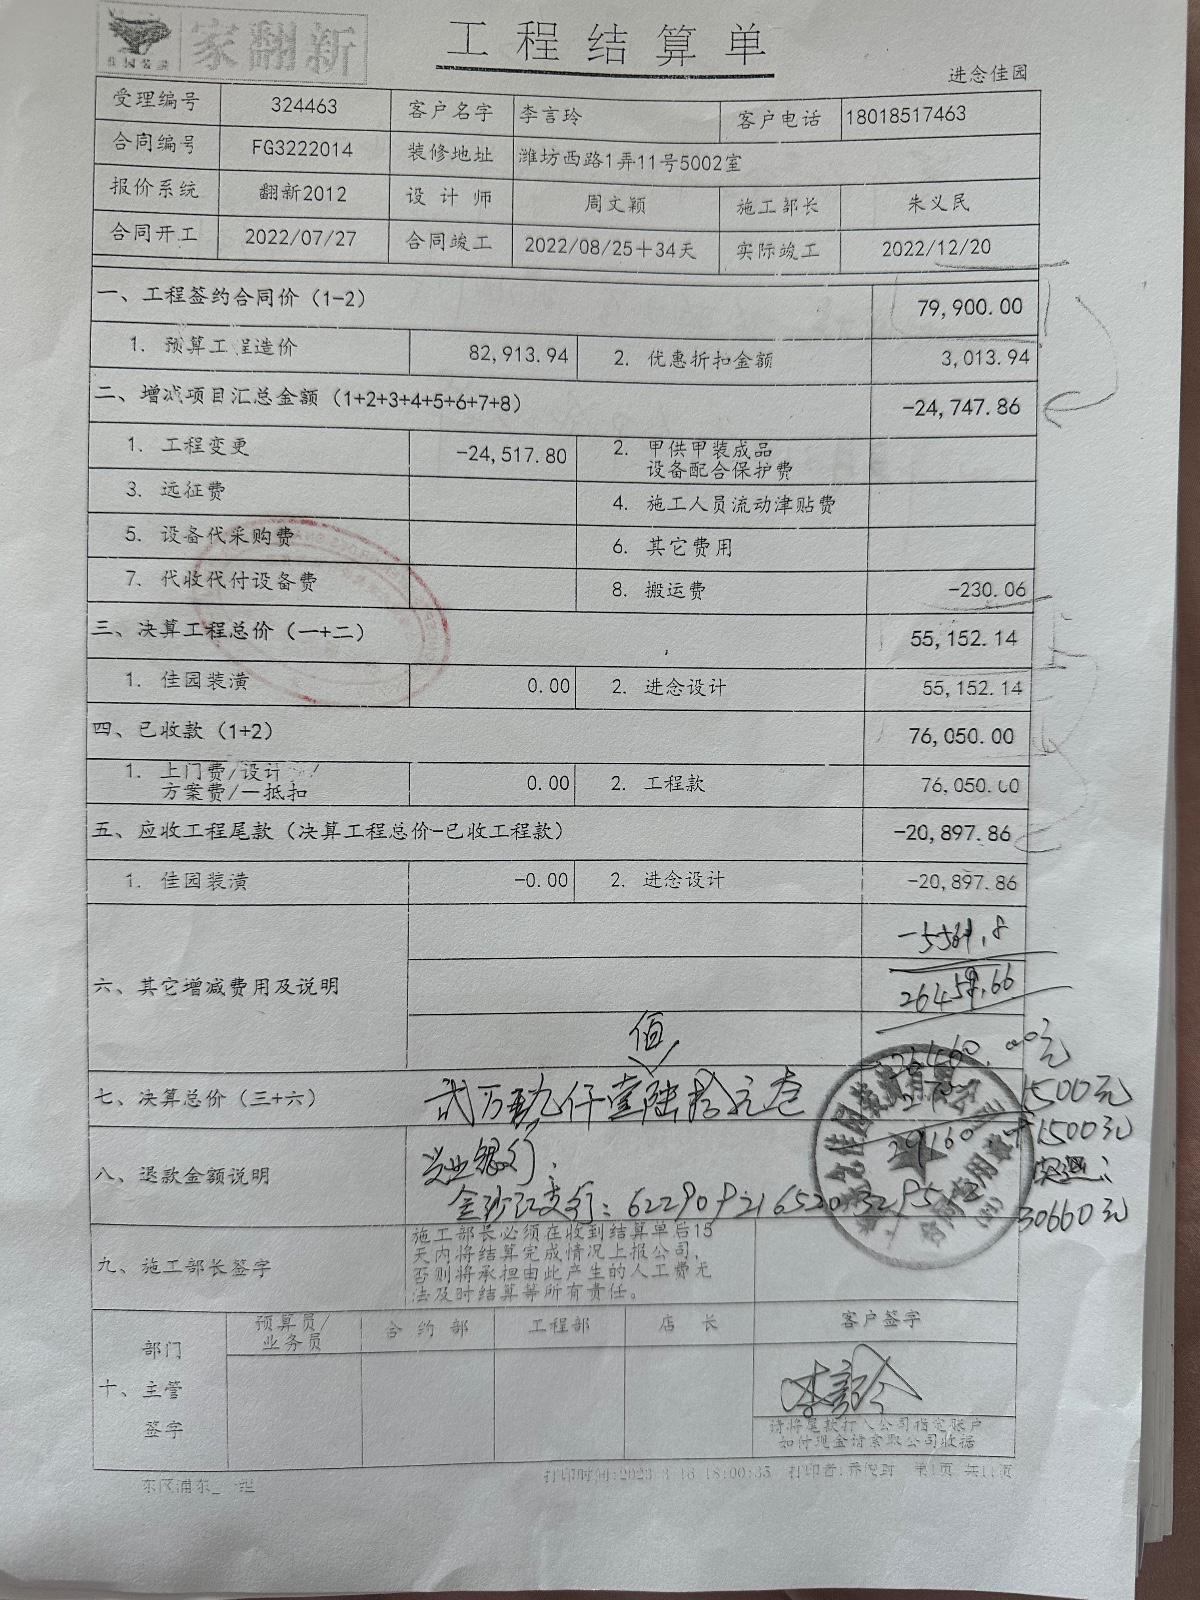 家翻新
工程结算单
进念佳园
受理编号 324463 客户名字 李言玲 客户电话 18018517463
合同编号 FG3222014 装修地址 潍坊西路1弄11号5002室
报价系统 翻新2012 设计师 周文颖 施工部长 朱义民
合同开工 2022/07/27 合同竣工 2022/08/25+34天 实际竣工 2022/12/20
一、工程签约合同价（1-2） 79,900.00
1. 预算工程造价 82,913.94 2. 优惠折扣金额 3,013.94
二、增减项目汇总金额（1+2+3+4+5+6+7+8） -24,747.86
1. 工程变更 -24,517.80 2. 甲供甲装成品
设备配合保护费
3. 远征费 4. 施工人员流动津贴费
5. 设备代采购费 6. 其它费用
7. 代收代付设备费 8. 搬运费 -230.06
三、决算工程总价（一+二） 55,152.14
1. 佳园装潢 0.00 2. 进念设计 55,152.14
四、已收款（1+2） 76,050.00
1. 上门费/设计
方案费/一抵扣 0.00 2. 工程款 76,050.00
五、应收工程尾款（决算工程总价-已收工程款） -20,897.86
1. 佳园装潢 -0.00 2. 进念设计 -20,897.86
六、其它增减费用及说明
26459.66
佰
七、决算总价（三+六） 1500元
29160 +1500元
八、退款金额说明 兴业银行
30660元
九、施工部长签字 施工部长必须在收到结算单后15
天内将结算完成情况上报公司，
否则将承担由此产生的人工费无
法及时结算等所有责任。
部门 预算员/
业务员 合约部 工程部 店长 客户签字
十、主管
签字 李言玲
请将尾款打入公司指定账户
如付现金请索取公司收据
第1页 共11页